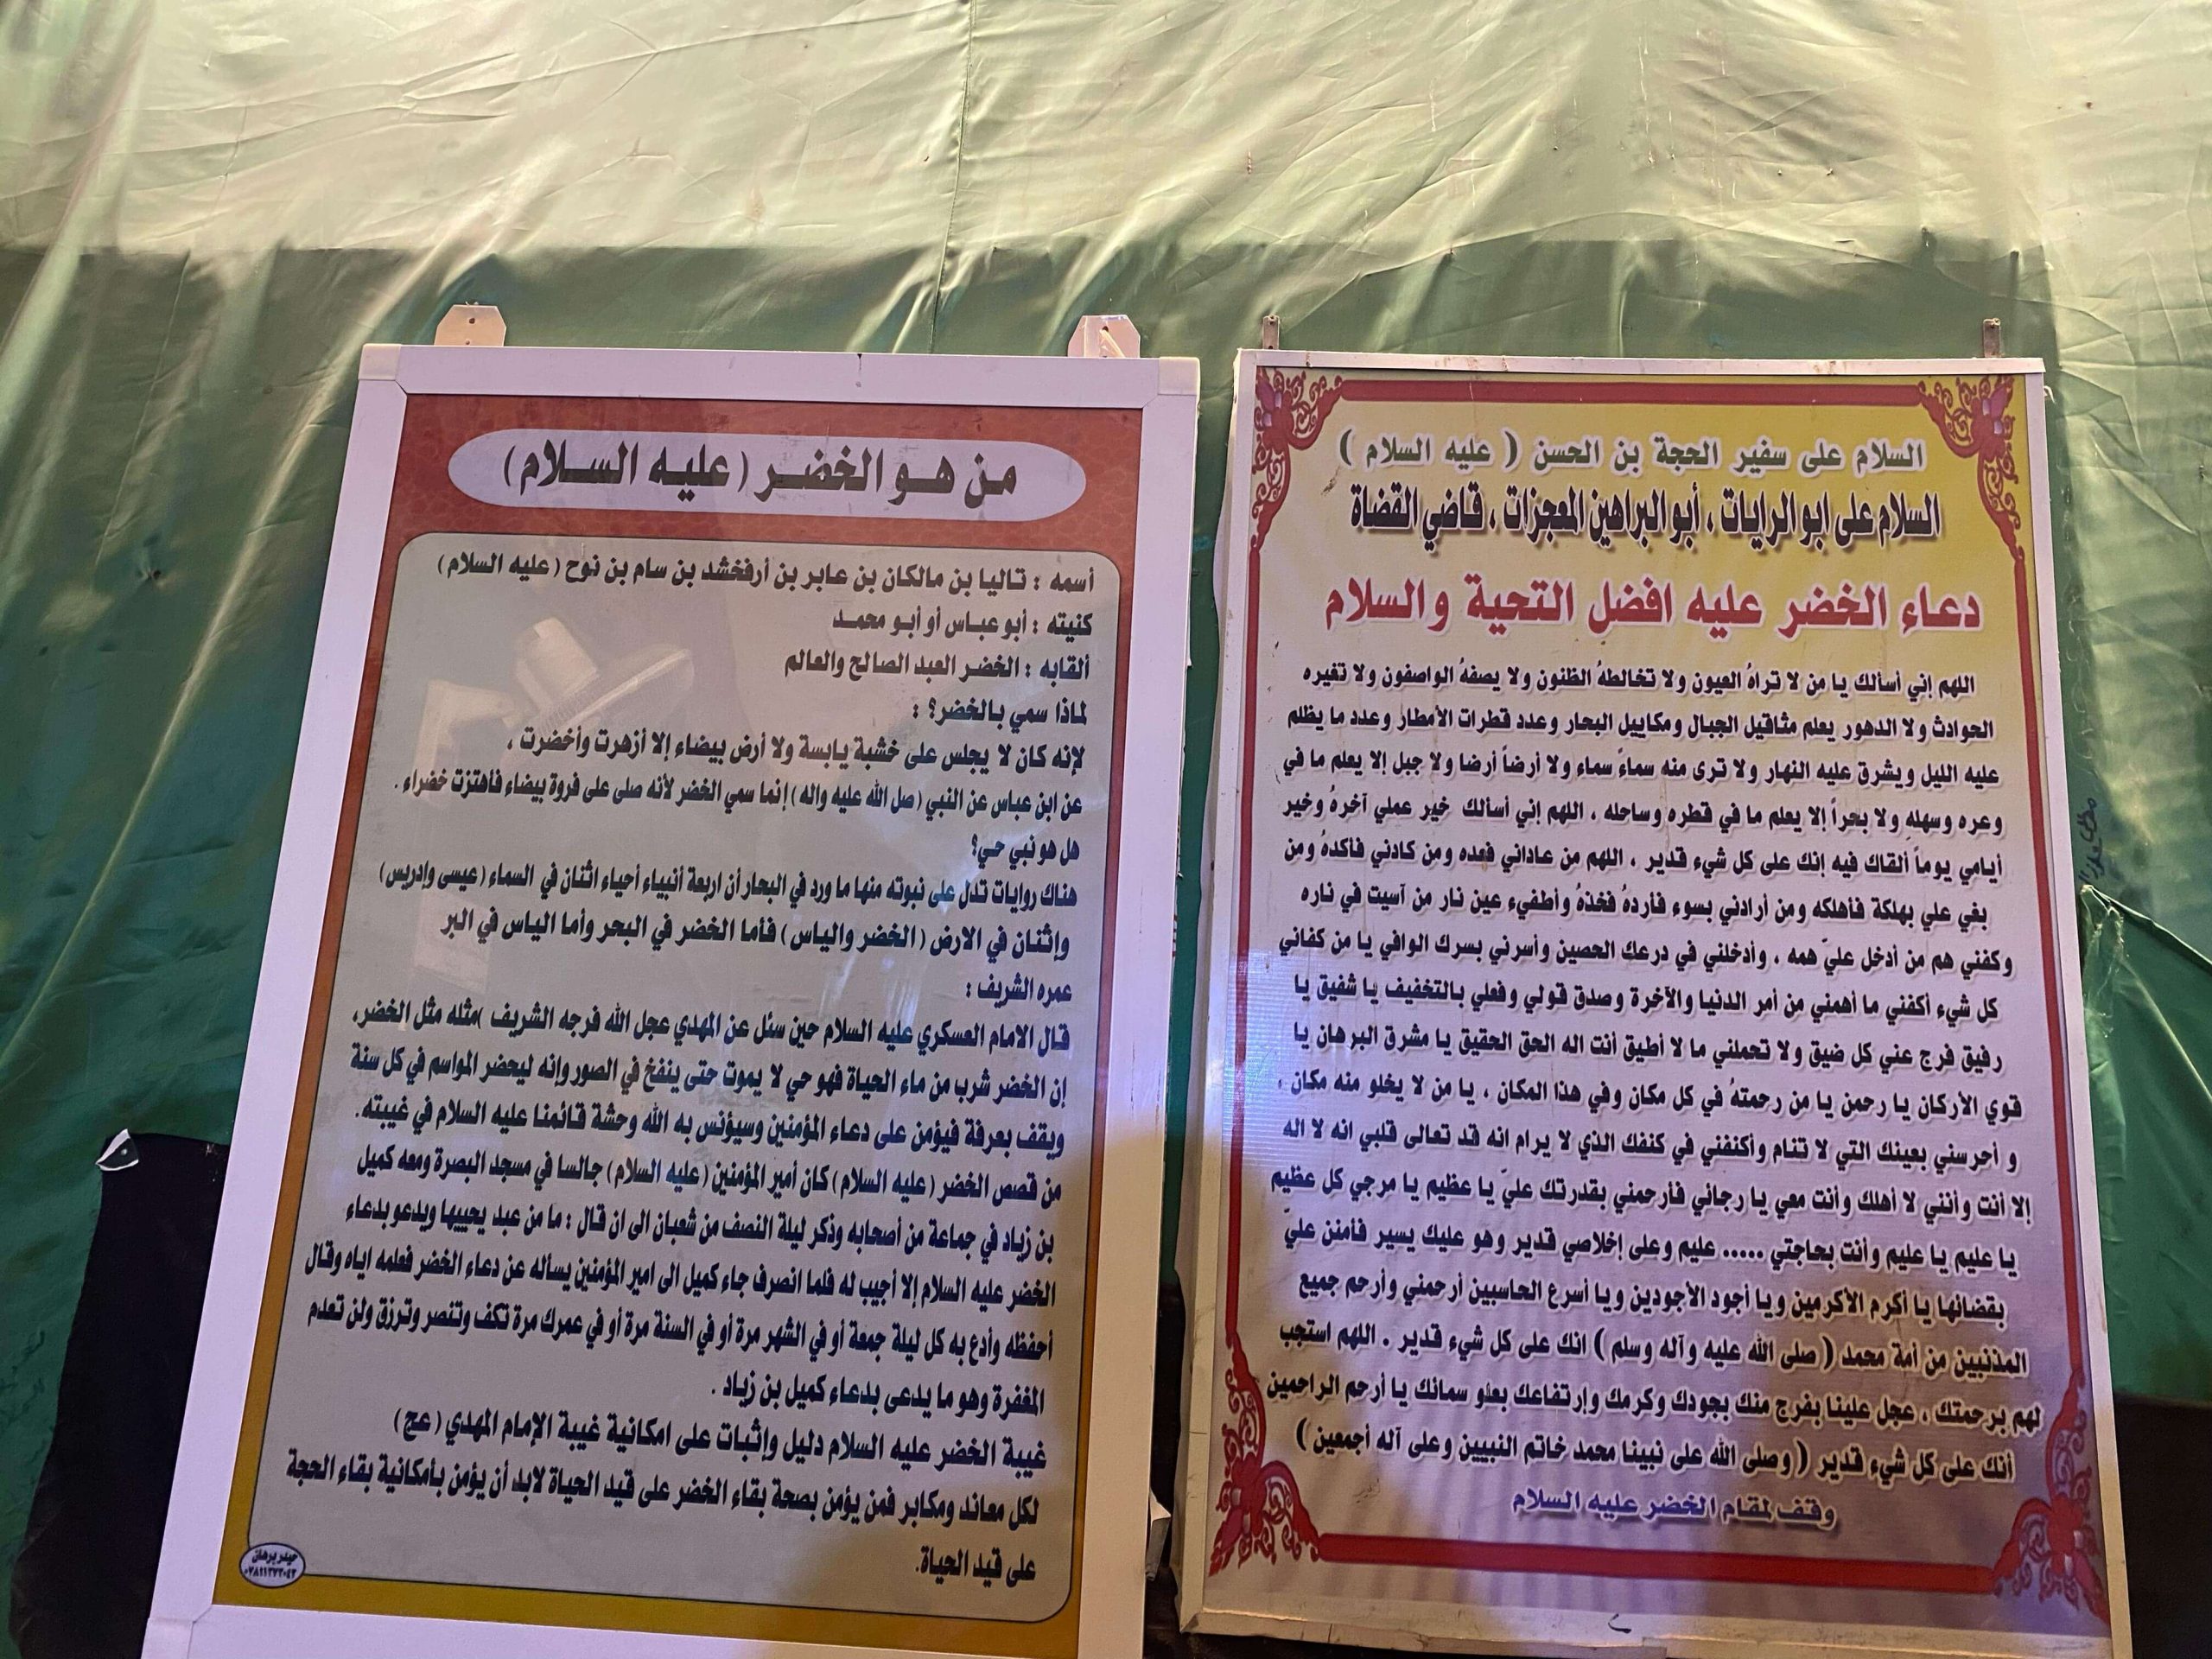 من هو الخضر (عليه السلام)
أسمه : تاليا بن مالكان بن عابر بن أرفخشد بن سام بن نوح (عليه السلام)
كنيته : أبو عباس أو أبو محمد
ألقابه : الخضر العبد الصالح والعالم
لماذا سمي بالخضر؟ :
لإنه كان لا يجلس على خشبة يابسة ولا أرض بيضاء إلا أزهرت وأخضرت ،
عن ابن عباس عن النبي (صل الله عليه واله) إنما سمي الخضر لأنه صلى على فروة بيضاء فأهتزت خضراء .
هل هو نبي حي؟
هناك روايات تدل على نبوته منها ما ورد في البحار أن اربعة أنبياء أحياء اثنان في السماء (عيسى وإدريس)
وإثنان في الارض (الخضر والياس) فأما الخضر في البحر وأما الياس في البر
عمره الشريف :
قال الامام العسكري عليه السلام حين سئل عن المهدي عجل الله فرجه الشريف )مثله مثل الخضر،
إن الخضر شرب من ماء الحياة فهو حي لا يموت حتى ينفخ في الصور وإنه ليحضر المواسم في كل سنة
ويقف بعرفة فيؤمن على دعاء المؤمنين وسيؤنس به الله وحشة قائمنا عليه السلام في غيبته.
من قصص الخضر (عليه السلام) كان أمير المؤمنين (عليه السلام) جالسا في مسجد البصرة ومعه كميل
بن زياد في جماعة من أصحابه وذكر ليلة النصف من شعبان الى ان قال : ما من عبد يحييها ويدعو بدعاء
الخضر عليه السلام إلا أجيب له فلما انصرف جاء كميل الى امير المؤمنين يسأله عن دعاء الخضر فعلمه اياه وقال
أحفظه وأدع به كل ليلة جمعة أو في الشهر مرة أو في السنة مرة أو في عمرك مرة تكف وتنصر وترزق ولن تعدم
المغفرة وهو ما يدعى بدعاء كميل بن زياد .
غيبة الخضر عليه السلام دليل وإثبات على امكانية غيبة الإمام المهدي (عج)
لكل معاند ومكابر فمن يؤمن بصحة بقاء الخضر على قيد الحياة لابد أن يؤمن بأمكانية بقاء الحجة
على قيد الحياة.
حيدر برهان
السلام على سفير الحجة بن الحسن ( عليه السلام )
السلام على ابو الرايات ، أبو البراهين المعجزات ، قاضي القضاة
دعاء الخضر عليه افضل التحية والسلام
اللهم إني أسألك يا من لا تراهُ العيون ولا تخالطهُ الظنون ولا يصفهُ الواصفون ولا تغيره
الحوادث ولا الدهور يعلم مثاقيل الجبال ومكاييل البحار وعدد قطرات الأمطار وعدد ما يظلم
عليه الليل ويشرق عليه النهار ولا ترى منه سماءً سماء ولا أرضاً أرضا ولا جبل إلا يعلم ما في
وعره وسهله ولا بحراً إلا يعلم ما في قطره وساحله ، اللهم إني أسألك خير عملي آخرهُ وخير
أيامي يوماً ألقاك فيه إنك على كل شيء قدير ، اللهم من عاداني فعده ومن كادني فأكدهُ ومن
بغي علي بهلكة فأهلكه ومن أرادني بسوء فأردهُ فخذهُ وأطفيء عين نار من آسيت في ناره
وكفني هم من أدخل عليّ همه ، وأدخلني في درعك الحصين وأسرني بسرك الوافي يا من كفاني
كل شيء أكفني ما أهمني من أمر الدنيا والآخرة وصدق قولي وفعلي بالتخفيف يا شفيق يا
رفيق فرج عني كل ضيق ولا تحملني ما لا أطيق أنت اله الحق الحقيق يا مشرق البرهان يا
قوي الأركان يا رحمن يا من رحمتهُ في كل مكان وفي هذا المكان ، يا من لا يخلو منه مكان ،
و أحرسني بعينك التي لا تنام وأكنفني في كنفك الذي لا يرام انه قد تعالى قلبي انه لا اله
إلا أنت وأنني لا أهلك وأنت معي يا رجائي فأرحمني بقدرتك عليّ يا عظيم يا مرجي كل عظيم
يا عليم يا عليم وأنت بحاجتي ..... عليم وعلى إخلاصي قدير وهو عليك يسير فأمنن عليّ
بقضائها يا أكرم الأكرمين ويا أجود الأجودين ويا أسرع الحاسبين أرحمني وأرحم جميع
المذنبين من أمة محمد ( صلى الله عليه وآله وسلم ) انك على كل شيء قدير . اللهم استجب
لهم برحمتك ، عجل علينا بفرج منك بجودك وكرمك وإرتفاعك بعلو سمائك يا أرحم الراحمين
أنك على كل شيء قدير ( وصلى الله على نبينا محمد خاتم النبيين وعلى آله أجمعين )
وقف لمقام الخضر عليه السلام